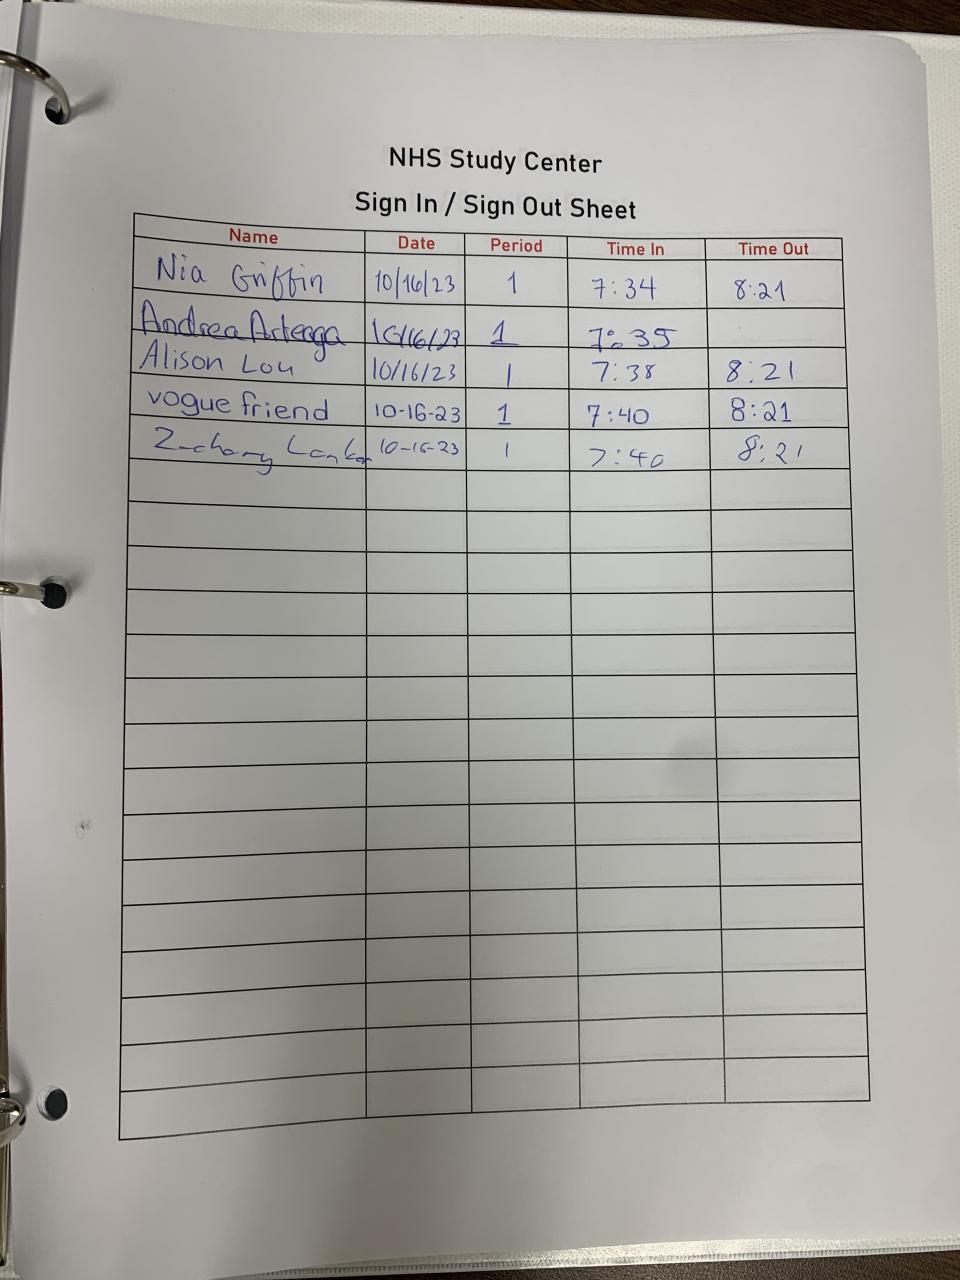 NHS Study Center
Sign In / Sign Out Sheet
Name Date Period Time In Time Out
Nia Griffin 10/16/23 1 7:34 8:21
Andrea Arteaga 10/16/23 1 7:35
Alison Lou 10/16/23 1 7:38 8:21
vogue friend 10-16-23 1 7:40 8:21
Zachary 10-16-23 1 7:40 8:21